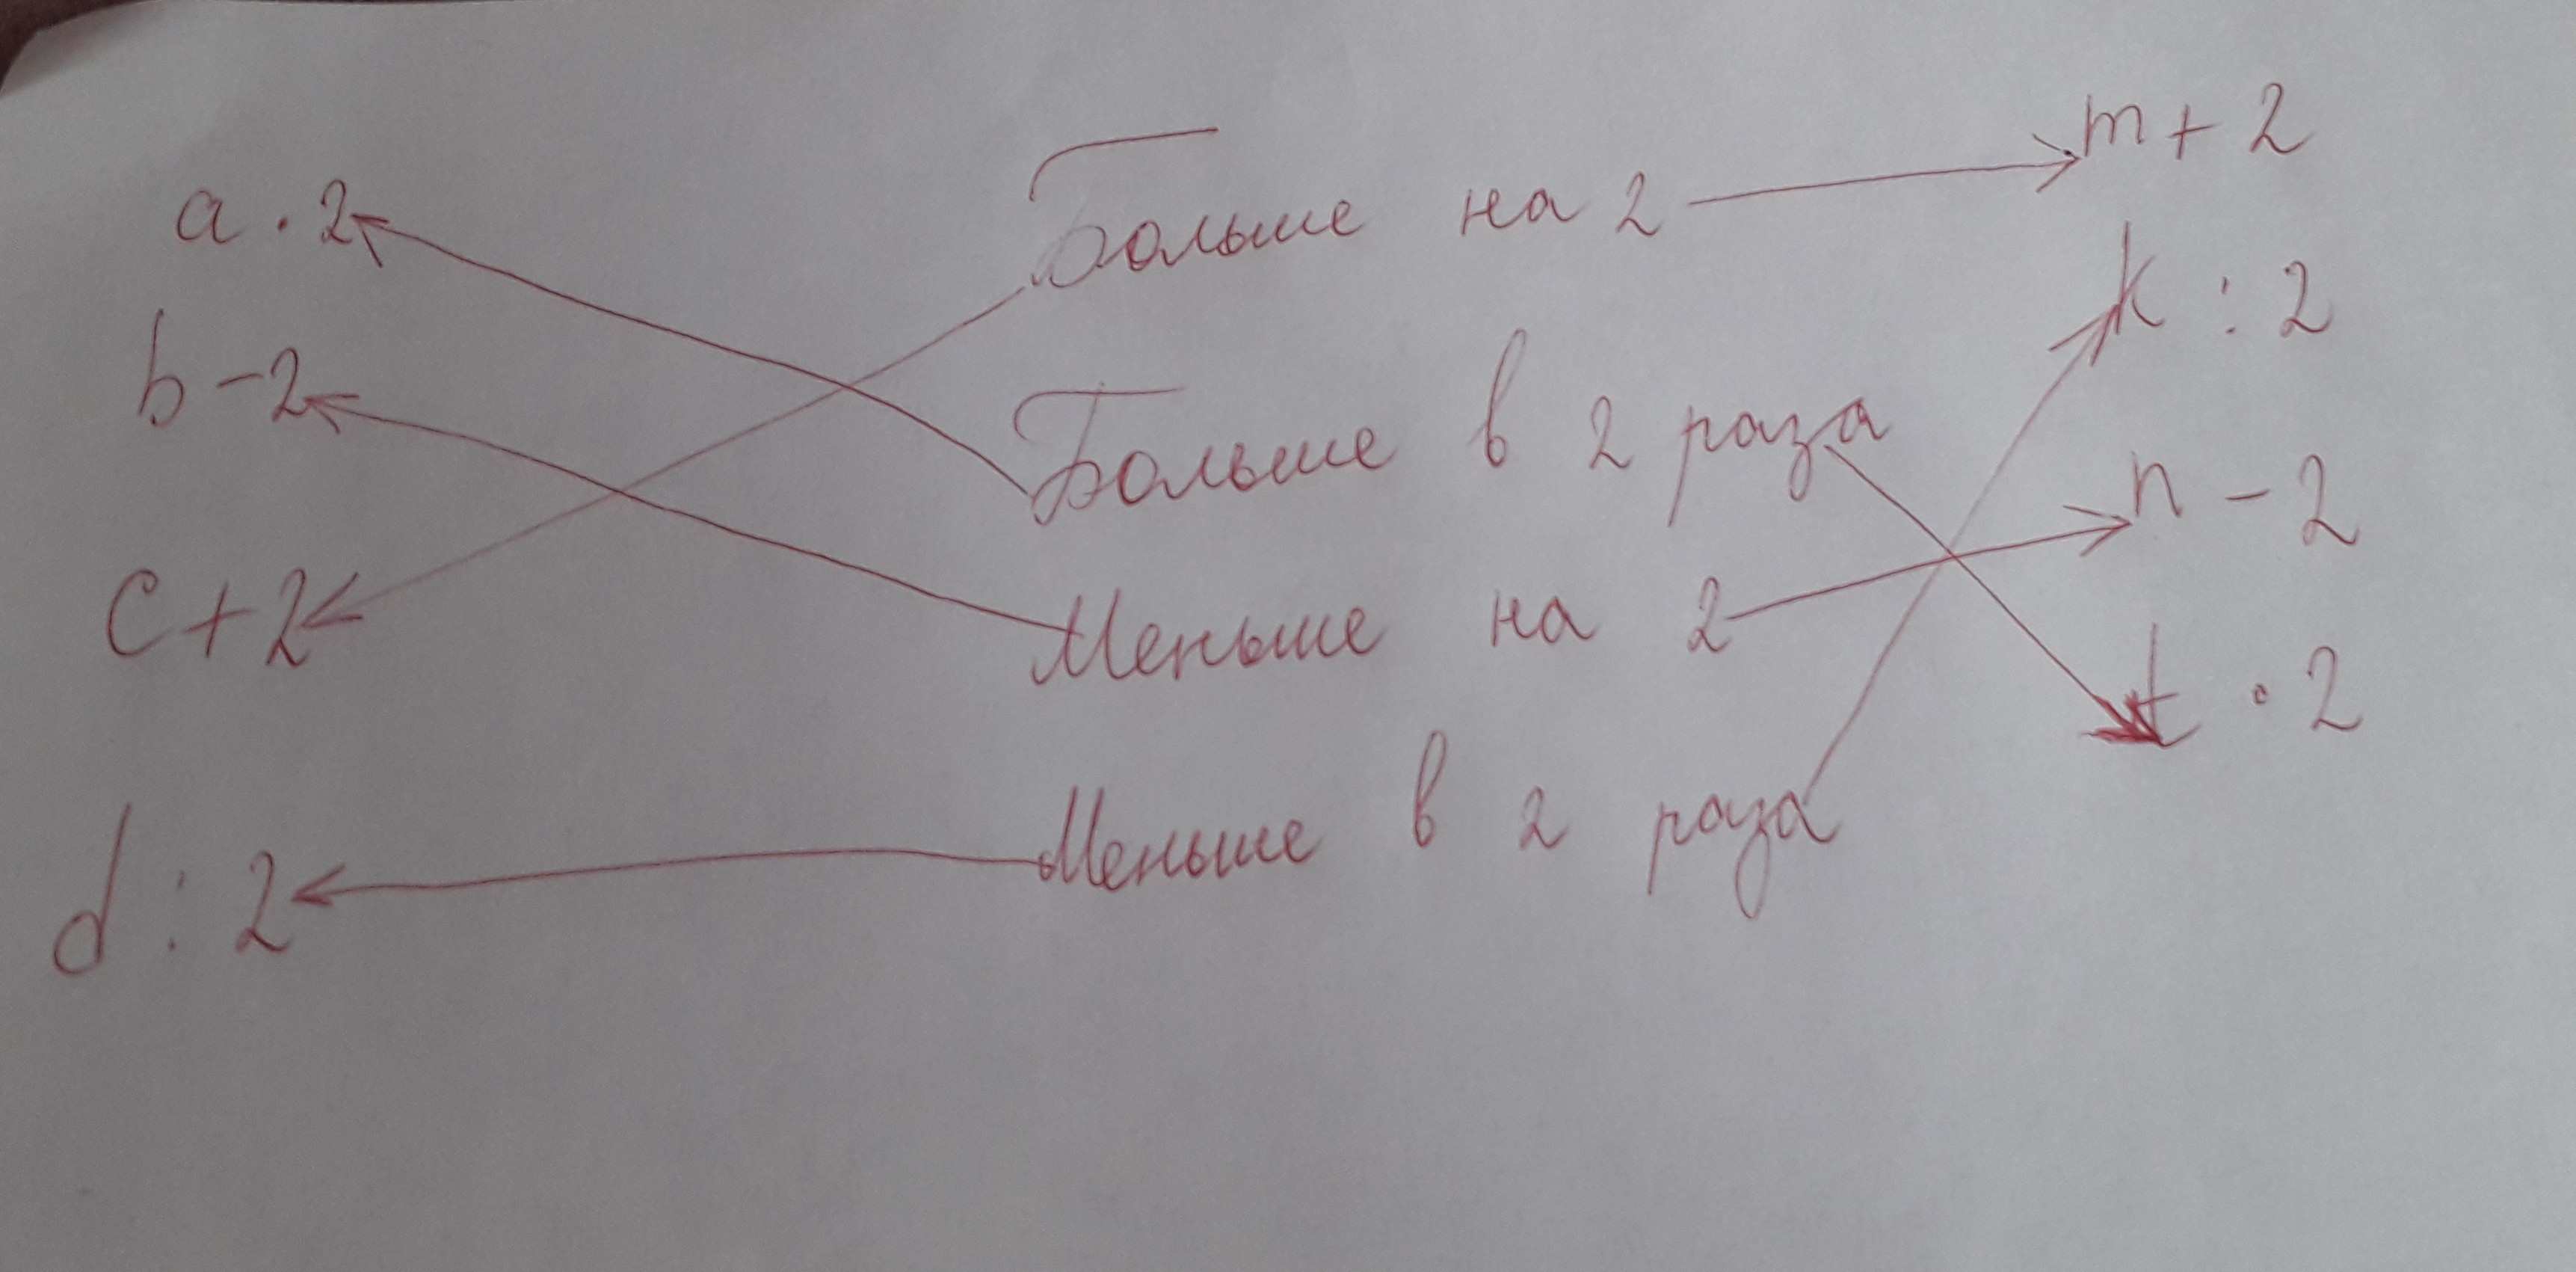 a · 2
b - 2
c + 2
d : 2
Больше на 2
Больше в 2 раза
Меньше на 2
Меньше в 2 раза
m + 2
k : 2
n - 2
t · 2